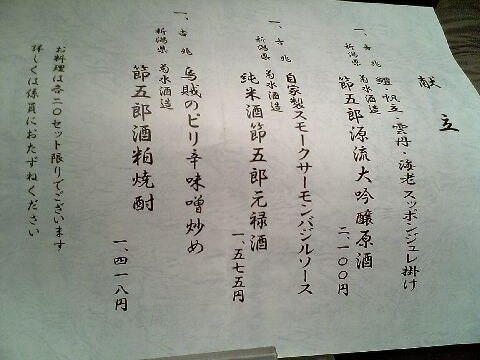 献立
一、吉兆
鱧・帆立・雲丹・海老スッポンジュレ掛け
新潟県 菊水酒造
節五郎源流大吟醸原酒
二、一〇〇円
一、吉兆
自家製スモークサーモンバジルソース
新潟県 菊水酒造
純米酒節五郎元禄酒
一、五七五円
一、吉兆
烏賊のピリ辛味噌炒め
新潟県 菊水酒造
節五郎酒粕焼酎
一、四一八円
お料理は各二〇セット限りでございます
詳しくは係員におたずねください